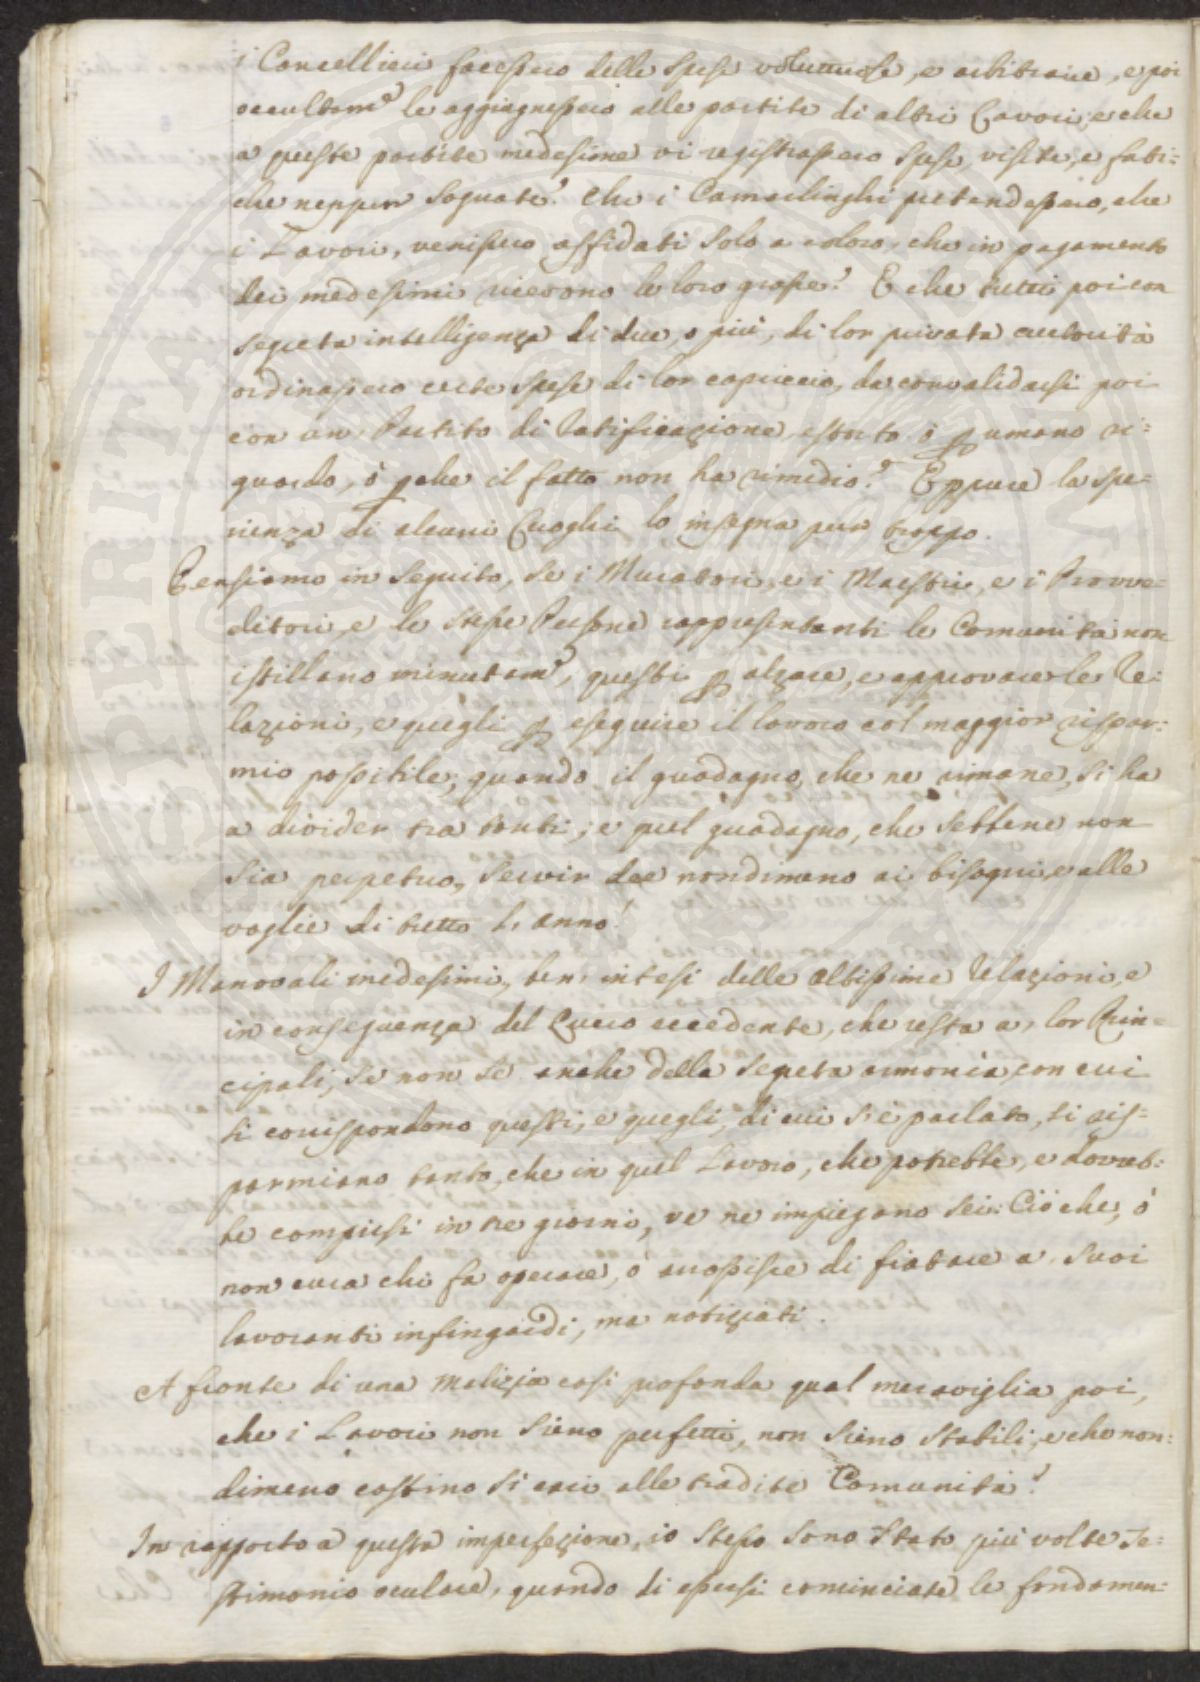 i Cancellieri facessero delle Spese voluttuose, e arbitrarie, e poi
occultam.e le aggiugnessero alle partite di altri Lavori, e che
a queste partite medesime vi registrassero Spese, visite, e fati=
che neppur Sognate? Che i Camarlinghi pretendessero, che
i Lavori, venissero affidati Solo a coloro, che in pagamento
dei medesimi ricevono le loro grasce? E che tutti poi con
segreta intelligenza di due, o più, di lor privata autorità
ordinassero certe Spese di lor capriccio, da convalidarsi poi
con un Partito di Ratificazione, estorto ò p umano ri=
guardo, ò pche il fatto non ha rimedio? Eppure la spe=
rienza di alcuni Luoghi lo insegna pur troppo.
Pensiamo in Seguito, Se i Muratori, e i Maestri, e i Provve=
ditori, e le Stesse Persone rappresentanti le Comunità non
istillano minutam.e, questi p alzare, e approvare le Re=
lazioni, e quegli p eseguire il lavoro col maggior rispar=
mio possibile; quando il guadagno, che ne rimane, Si ha
a divider tra tanti; e quel guadagno, che Sebbene non
Sia perpetuo, Servir dee nondimeno ai bisogni, e alle
voglie di tutto l'anno!
I Manovali medesimi, ben intesi delle altissime Relazioni, e
in conseguenza del Lucro eccedente, che resta a' lor Prin=
cipali, Se non Se anche della Segreta armonia, con cui
Si corrispondono questi, e quegli, di cui S'è parlato, Si ris=
parmiano tanto, che in quel Lavoro, che potrebbe, e dovreb=
be compiersi in tre giorni, ve ne impiegano Sei: Ciò che, ò
non cura chi fa operare, ò arrossisce di fiatare a' Suoi
lavoranti infingardi, ma notiziati.
A fronte di una malizia così profonda qual meraviglia poi,
che i Lavori non Sieno perfetti, non Sieno Stabili, e che non=
dimeno costino Sì cari alle tradite Comunità?
In rapporto a questa imperfezione, io Stesso Sono Stato più volte Te=
stimonio oculare, quando di spersi cominciate le fondamen=